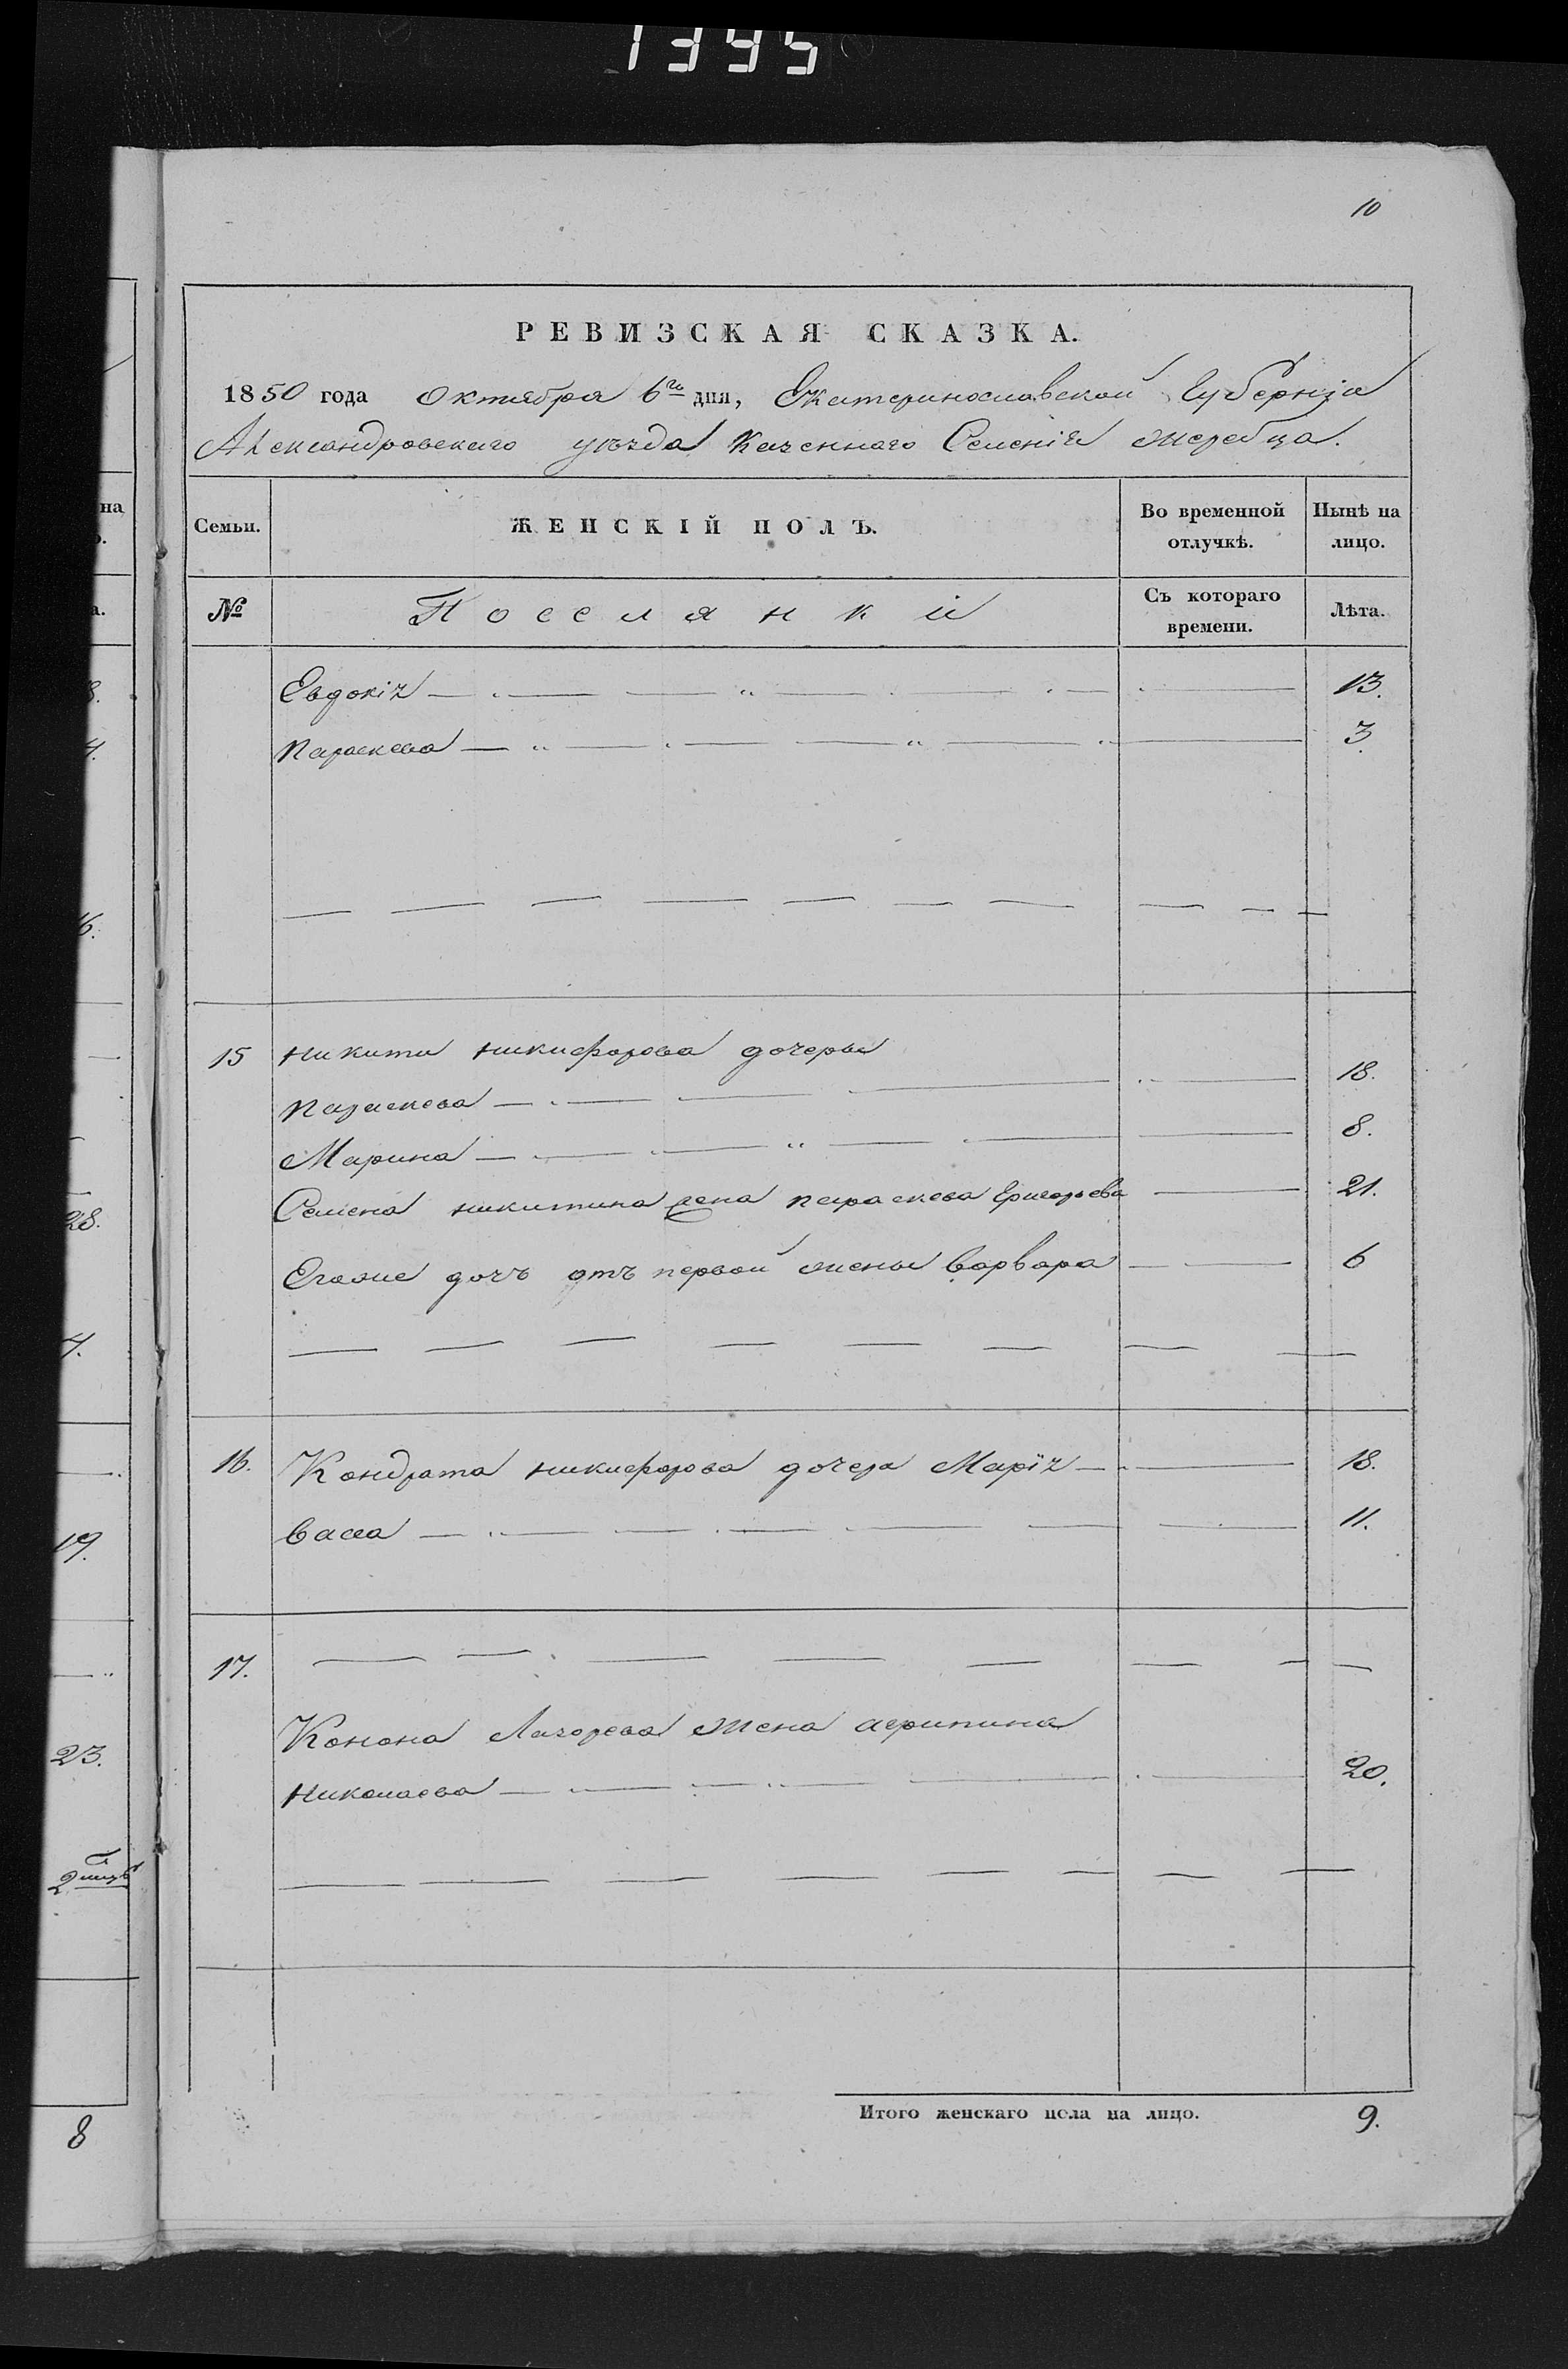 1395
10
РЕВИЗСКАЯ СКАЗКА.
1850 года Октября 6го дня, Екатеринославской Губернiи
Александровскаго уѣзда Казеннаго Селенiя жеребца.
Семьи.
ЖЕНСКІЙ ПОЛЪ.
Во временной отлучкѣ.
Нынѣ на лицо.
№
Поселянки
Съ котораго времени.
Лѣта.
Евдокiя 13.
Параскева 3.
15 никиты никифорова дочеры
Параскева 18.
Марина 8.
Семена никитина жена параскева Григорьева 21.
Егоже дочъ отъ первой жены варвара 6
16. Кондрата никифорова дочера Марiя 18.
васса 11.
17.
Конона Лазорева жена агрипина
николаева 20.
Итого женскаго пола на лицо. 9.
на
а.
28.
4.
19.
23.
8